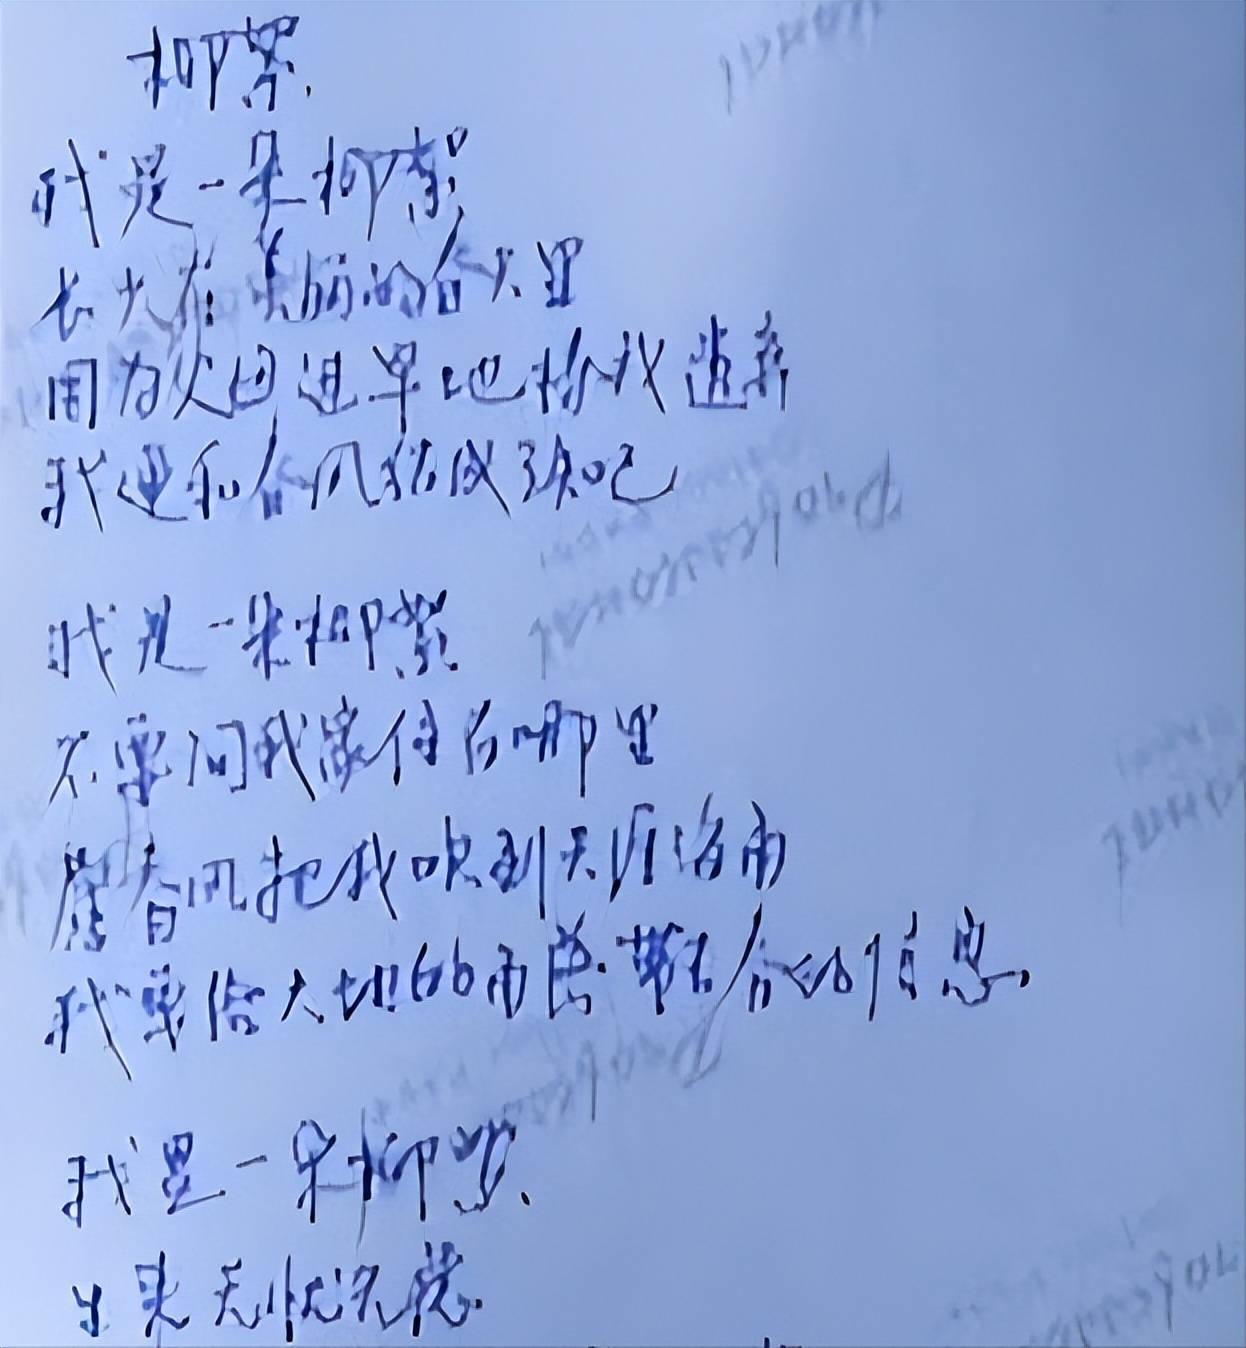 柳絮
我是一朵柳絮
长大在美丽的春天里
因为父母过早地将我遗弃
我便和春风结成了知己
我是一朵柳絮
不要问我家住在哪里
愿春风把我吹到天涯海角
我要给大地的角落带去春的信息
我是一朵柳絮
生来无忧无虑